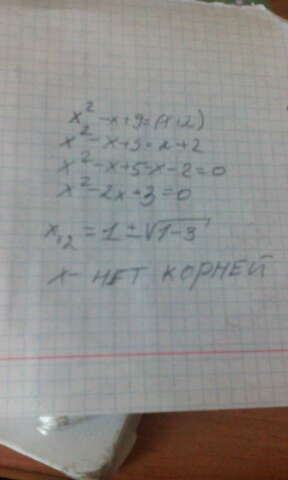 x² - x + 5 = x + 2
x² - x + 5 - x - 2 = 0
x² - 2x + 3 = 0
x₁,₂ = 1 ± √1-3
x - НЕТ КОРНЕЙ